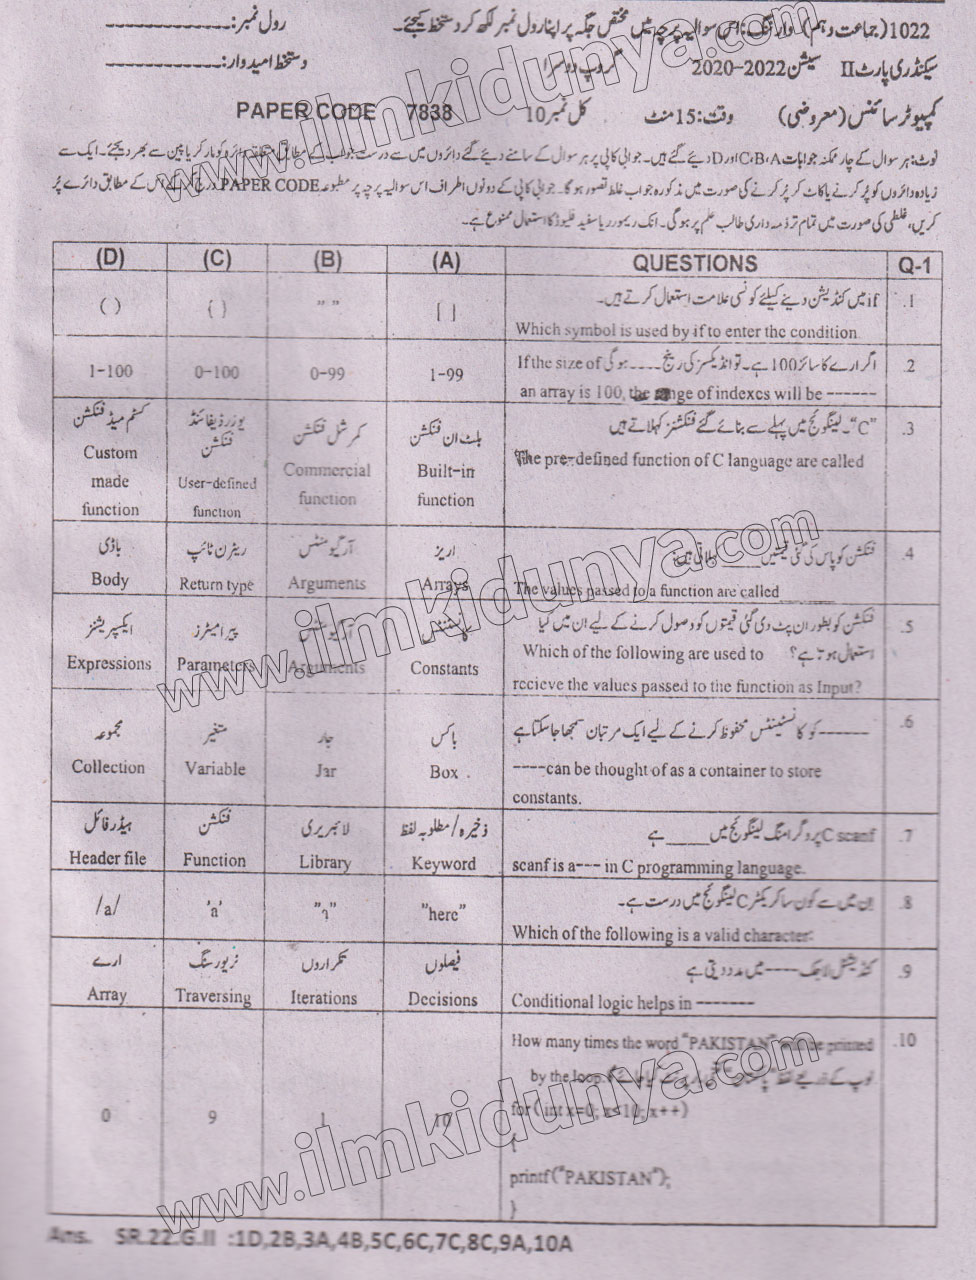 1022 (جماعت دہم) وارننگ: اس سوالیہ پرچہ میں مختص جگہ پر اپنا رول نمبر لکھ کر دستخط کیجئے۔ رول نمبر:
سیکنڈری پارٹ II سیشن 2020-2022 گروپ دوسرا دستخط امیدوار:
کمپیوٹر سائنس (معروضی) وقت: 15 منٹ کل نمبر 10 PAPER CODE 7838
نوٹ: ہر سوال کے چار ممکنہ جوابات C، B، A اور D دیئے گئے ہیں۔ جوابی کاپی پر ہر سوال کے سامنے دیئے گئے دائروں میں سے درست جواب کے مطابق متعلقہ دائرہ کو مارکر یا پین سے بھر دیجئے۔ ایک سے
زیادہ دائروں کو پُر کرنے یا کاٹ کر پُر کرنے کی صورت میں مذکورہ جواب غلط تصور ہوگا۔ جوابی کاپی کے دونوں اطراف اس سوالیہ پرچہ پر مطبوعہ PAPER CODE درج کر کے اس کے مطابق دائرے پُر
کریں، غلطی کی صورت میں تمام تر ذمہ داری طالب علم پر ہوگی۔ انک ریموور یا سفید فلیوڈ کا استعمال ممنوع ہے۔
(D) (C) (B) (A) QUESTIONS Q-1
if میں کنڈیشن دینے کیلئے کونسی علامت استعمال کرتے ہیں۔ .1
( ) { } " " [ ]
Which symbol is used by if to enter the condition
اگر ارے کا سائز 100 ہے۔ تو انڈیکسز کی رینج ---- ہوگی If the size of .2
1-100 0-100 0-99 1-99
an array is 100, the range of indexes will be ------
"C"۔ لینگوئج میں پہلے سے بنائے گئے فنکشنز کہلاتے ہیں .3
کسٹم میڈ فنکشن یوزر ڈیفائنڈ فنکشن کمرشل فنکشن بلٹ ان فنکشن
The pre-defined function of C language are called
Custom made function User-defined function Commercial function Built-in function
فنکشن کو پاس کی گئی قیمتیں ____ کہلاتی ہیں۔ .4
باڈی ریٹرن ٹائپ آرگیومنٹس اریز
Body Return type Arguments Arrays The values passed to a function are called ______
فنکشن کو بطور ان پٹ دی گئی قیمتوں کو وصول کرنے کے لیے ان میں کیا .5
استعمال ہوتا ہے؟ Which of the following are used to
ایکسپریشنز پیرامیٹرز آرگیومنٹس کانسٹنٹس
Expressions Parameters Arguments Constants
recieve the values passed to the function as Input?
------ کو کانسٹینٹس محفوظ کرنے کے لیے ایک مرتبان سمجھا جاسکتا ہے .6
مجموعہ متغیر جار باکس
Collection Variable Jar Box
----can be thought of as a container to store
constants.
C scanf پروگرامنگ لینگوئج میں ____ ہے .7
ہیڈر فائل فنکشن لائبریری ذخیرہ/مطلوبہ لفظ
Header file Function Library Keyword scanf is a--- in C programming language.
اِن میں سے کون سا کریکٹر C لینگوئج میں درست ہے۔ .8
/a/ 'a' "here"
Which of the following is a valid character:
کنڈیشنل لاجک ---- میں مدد دیتی ہے .9
ارے ٹریورسنگ تکراروں فیصلوں
Array Traversing Iterations Decisions Conditional logic helps in -------
How many times the word "PAKISTAN" will be printed .10
by the loop.
0 9 1 10
for ( int x=0; x≤10; x++)
{
printf("PAKISTAN");
}
Ans. SR.22.G.II :1D,2B,3A,4B,5C,6C,7C,8C,9A,10A
www.ilmkidunya.com
www.ilmkidunya.com
www.ilmkidunya.com